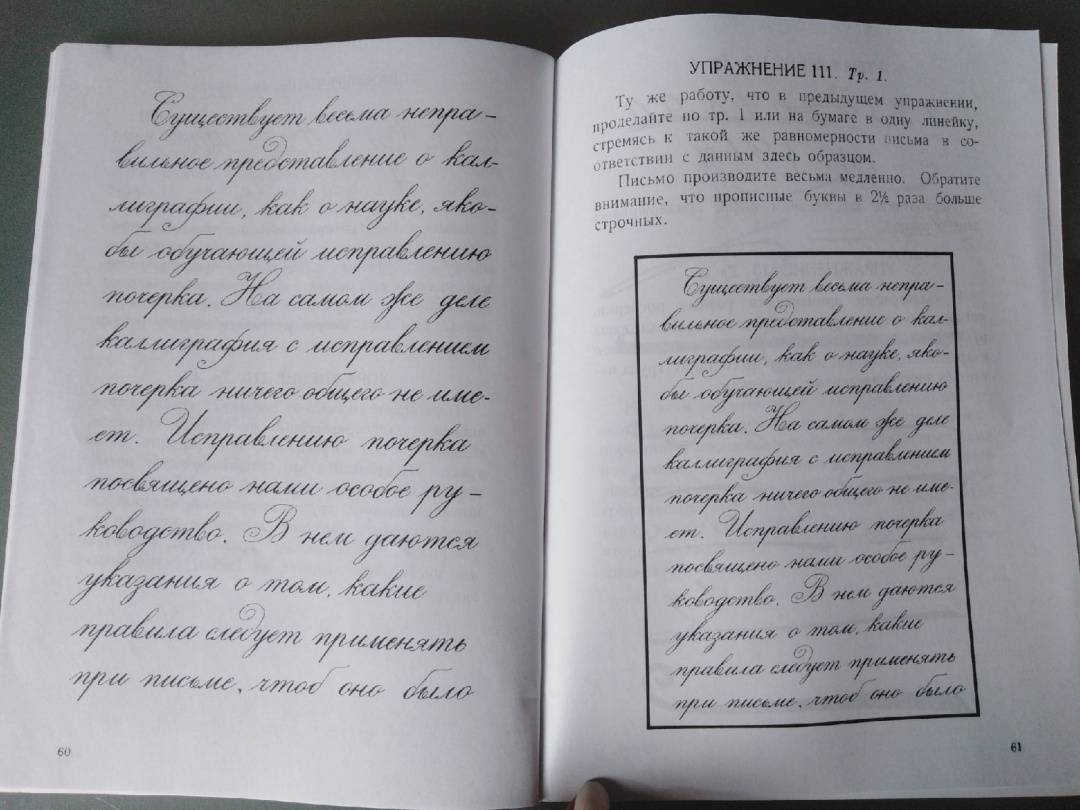 Существует весьма непра-
вильное представление о кал-
лиграфии, как о науке, яко-
бы обучающей исправлению
почерка. На самом же деле
каллиграфия с исправлением
почерка ничего общего не име-
ет. Исправлению почерка
посвящено нами особое ру-
ководство. В нем даются
указания о том, какие
правила следует применять
при письме, чтоб оно было
60
УПРАЖНЕНИЕ 111. Тр. 1.
Ту же работу, что в предыдущем упражнении,
проделайте по тр. 1 или на бумаге в одну линейку,
стремясь к такой же равномерности письма в со-
ответствии с данным здесь образцом.
Письмо производите весьма медленно. Обратите
внимание, что прописные буквы в 2½ раза больше
строчных.
Существует весьма непра-
вильное представление о кал-
лиграфии, как о науке, яко-
бы обучающей исправлению
почерка. На самом же деле
каллиграфия с исправлением
почерка ничего общего не име-
ет. Исправлению почерка
посвящено нами особое ру-
ководство. В нем даются
указания о том, какие
правила следует применять
при письме, чтоб оно было
61